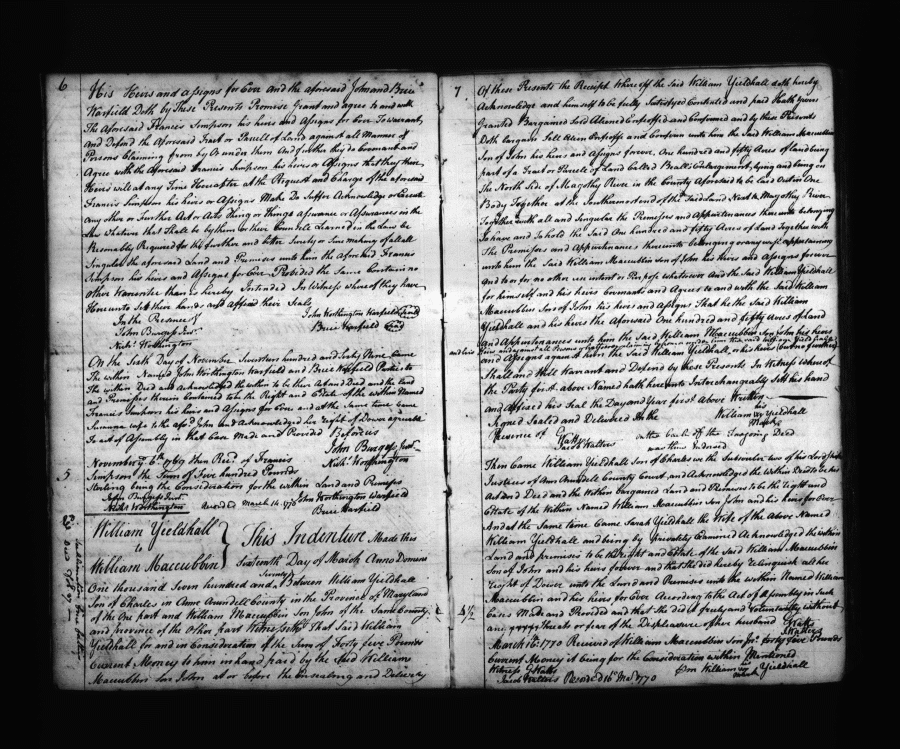 6
His Heirs and assigns for Ever And the aforesaid John and Brice
Warfield Doth by These Presents Promise Grant and agree to and with
The Aforesaid Francis Simpson his heirs and Assigns for Ever To warrant
And Defend the Aforesaid Tract or Parcell of Land against all Manner of
Persons Claiming from by or under them And further they do Covenant and
Agree with the Aforesaid Francis Simpson his heirs or Assigns that they their
Heirs will at any Time Hereafter at the Request and Charge of the aforesaid
Francis Simpson his heirs or Assigns Make Do Suffer Acknowledge or Execute
any other or Further Act or Acts Thing or Things Assurance or Assurances in the
Law whatever that Shall be by them or their Councill Learned in the Laws be
Resonably Required for the further and better Surety or Sure making of all &
Singular the aforesaid Land and Premises unto him the Aforesaid Francis
Simpson his heirs and Assigns for Ever Provided the Same Contain no
other Warrantee than is hereby Intended In Witness whereof they have
Hereunto Set their hands and affixed their Seals
In the Presence of John Worthington Warfield Seal
John Burgess Junr Brice Warfield Seal
Nichs Worthington
On the Sixth Day of November Seventeen hundred and Sixty Nine Came
The within Named John Worthington Warfield and Brice Warfield Parties to
The within Deed and Acknowledged the within to be their Act and Deed and the Land
and Premises therein Contained to be the Right and Estate of the within Named
Francis Simpson his heirs and Assigns for Ever and at the Same time came
Susanna wife to the afsd John and Acknowledged her Right of Dower agreeable
to act of Assembly in that Case Made and Provided Before us
John Burgess Junr
Nichs Worthington
November 6th 1769 then Recd of Francis
Simpson the Sum of Five hundred Pounds
Sterling being the Consideration for the within Land and Premises
John Burgess Junr John Worthington Warfield
Nichs Worthington Recorded March 14 1770 Brice Warfield
5
William Yieldhall
to
William Maccubbin
This Indenture Made this
Sixteenth Day of March Anno Domini
One thousand Seven hundred and Seventy Between William Yieldhall
Son of Charles in Anne Arundell County in the Province of Maryland
of the One part and William Maccubbin Son John of the Same County
and province of the Other part Witnesseth That Said William
Yieldhall for and in Consideration of the Sum of Forty five Pounds
Current Money to him in hand paid by the Said William
Maccubbin Son John at or before the ensealing and Delivery
7
Of these Presents the Receipt whereoff the Said William Yieldhall doth hereby
Acknowledge and himself to be fully Satisfyed Contented and paid Hath given
Granted Bargained Sold Aliened Enfeoffed and Confirmed and by these Presents
Doth Bargain Sell Alien Enfeoffe and Confirm unto him the Said William Maccubbin
Son of John his heirs and Assigns forever One hundred and fifty Acres of land being
part of a Tract or Parcell of Land Called Balls Enlargement, lying and being on
The North Side of Magothy River in the County Aforesaid to be laid Out in One
Body Together at the Southernmost end of the Said Land Next to Magothy River
Together with all and Singular the Premises and Appurtenances thereunto belonging
To have and to hold the Said One hundred and fifty Acres of land Together with
The Premises and Appurtenances thereunto belonging or anyways appertaining
unto him the Said William Maccubbin son of John his heirs and Assigns forever
And to or for no other use intent or Purpose whatsoever And the Said William Yieldhall
for himself and his heirs Covenants and Agrees to and with the Said William
Maccubbin Son of John his heirs and Assigns That he the Said William
Yieldhall and his heirs the Aforesaid One hundred and fifty Acres of land
And Appurtenances unto him the Said William Maccubbin Son John his heirs
and Assigns against him the Said William Yieldhall, or his heirs
Shall and Will Warrant and Defend by these Presents In Witness whereof
the Party first above Named hath hereunto Interchangeably Set his hand
and affixed his Seal the Day and Year first Above Written
Signed Sealed and Delivered In the his
William Yieldhall
Mark
Presence of G Watts
Jacob Walters on the back off the Foregoing Deed
was thus Indorsed
Then Came William Yieldhall Son of Charles
Justices of Ann Arundell County Court, and Acknowledged the Within Deed to be his
Act and Deed and the Within bargained Land and Premises to be the Right and
Estate of the Within Named William Maccubbin Son John and his heirs for Ever
And at the Same time Came Sarah Yieldhall the Wife of the Above Named
William Yieldhall and being by me Privately Examined Acknowledged the within
Land and premisses to be the right and Estate of the Said William Maccubbin
Son of John and his heirs forever and that she did hereby Relinquish all her
Right of Dower unto the Land and Premises unto the within Named William
Maccubbin and his heirs for Ever According to the Act of Assembly in Such
Cases Made and Provided and that she did it freely and Voluntarily without
any threats or fear of the Displeasure of her husband G Watts
J Walters
March 16th 1770 Received of William Maccubbin Son Jno forty five Pounds
Current Money it being for the Consideration within Mentioned
Witness G Watts his
Jacob Walters Recorded 16th Mar 1770 William Yieldhall
mark